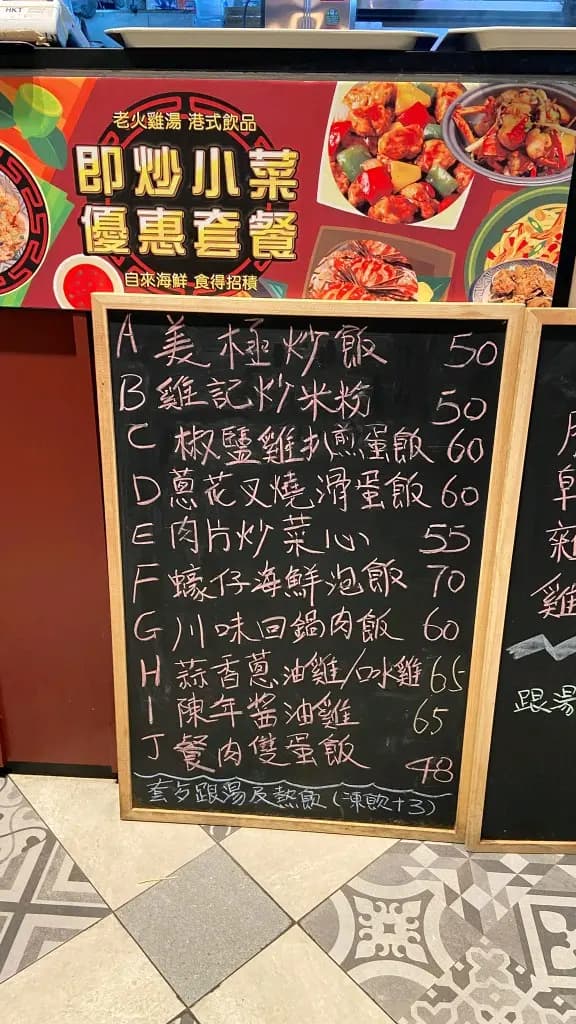 HKT
老火雞湯 港式飲品
即炒小菜
優惠套餐
自來海鮮 食得招積
A 美極炒飯 50
B 雞記炒米粉 50
C 椒鹽雞扒煎蛋飯 60
D 蔥花叉燒滑蛋飯 60
E 肉片炒菜心 55
F 蠔仔海鮮泡飯 70
G 川味回鍋肉飯 60
H 蒜香蔥油雞/口水雞 65
I 陳年醬油雞 65
J 餐肉雙蛋飯 48
套歺跟湯及熱飲(凍飲+3)
雞
跟湯